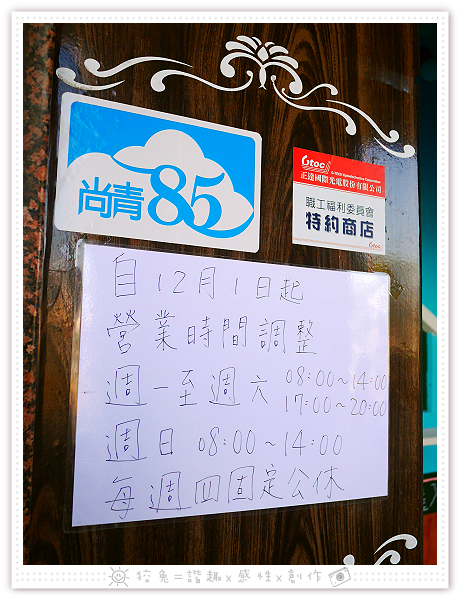 尚青85
Gtoc
G-TECH Optoelectronics Corporation
正達國際光電股份有限公司
職工福利委員會
特約商店
Gtoc
自12月1日起
營業時間調整
週一至週六 08:00~14:00
17:00~20:00
週日 08:00~14:00
每週四固定公休
狡兔=諧趣x感性x創作